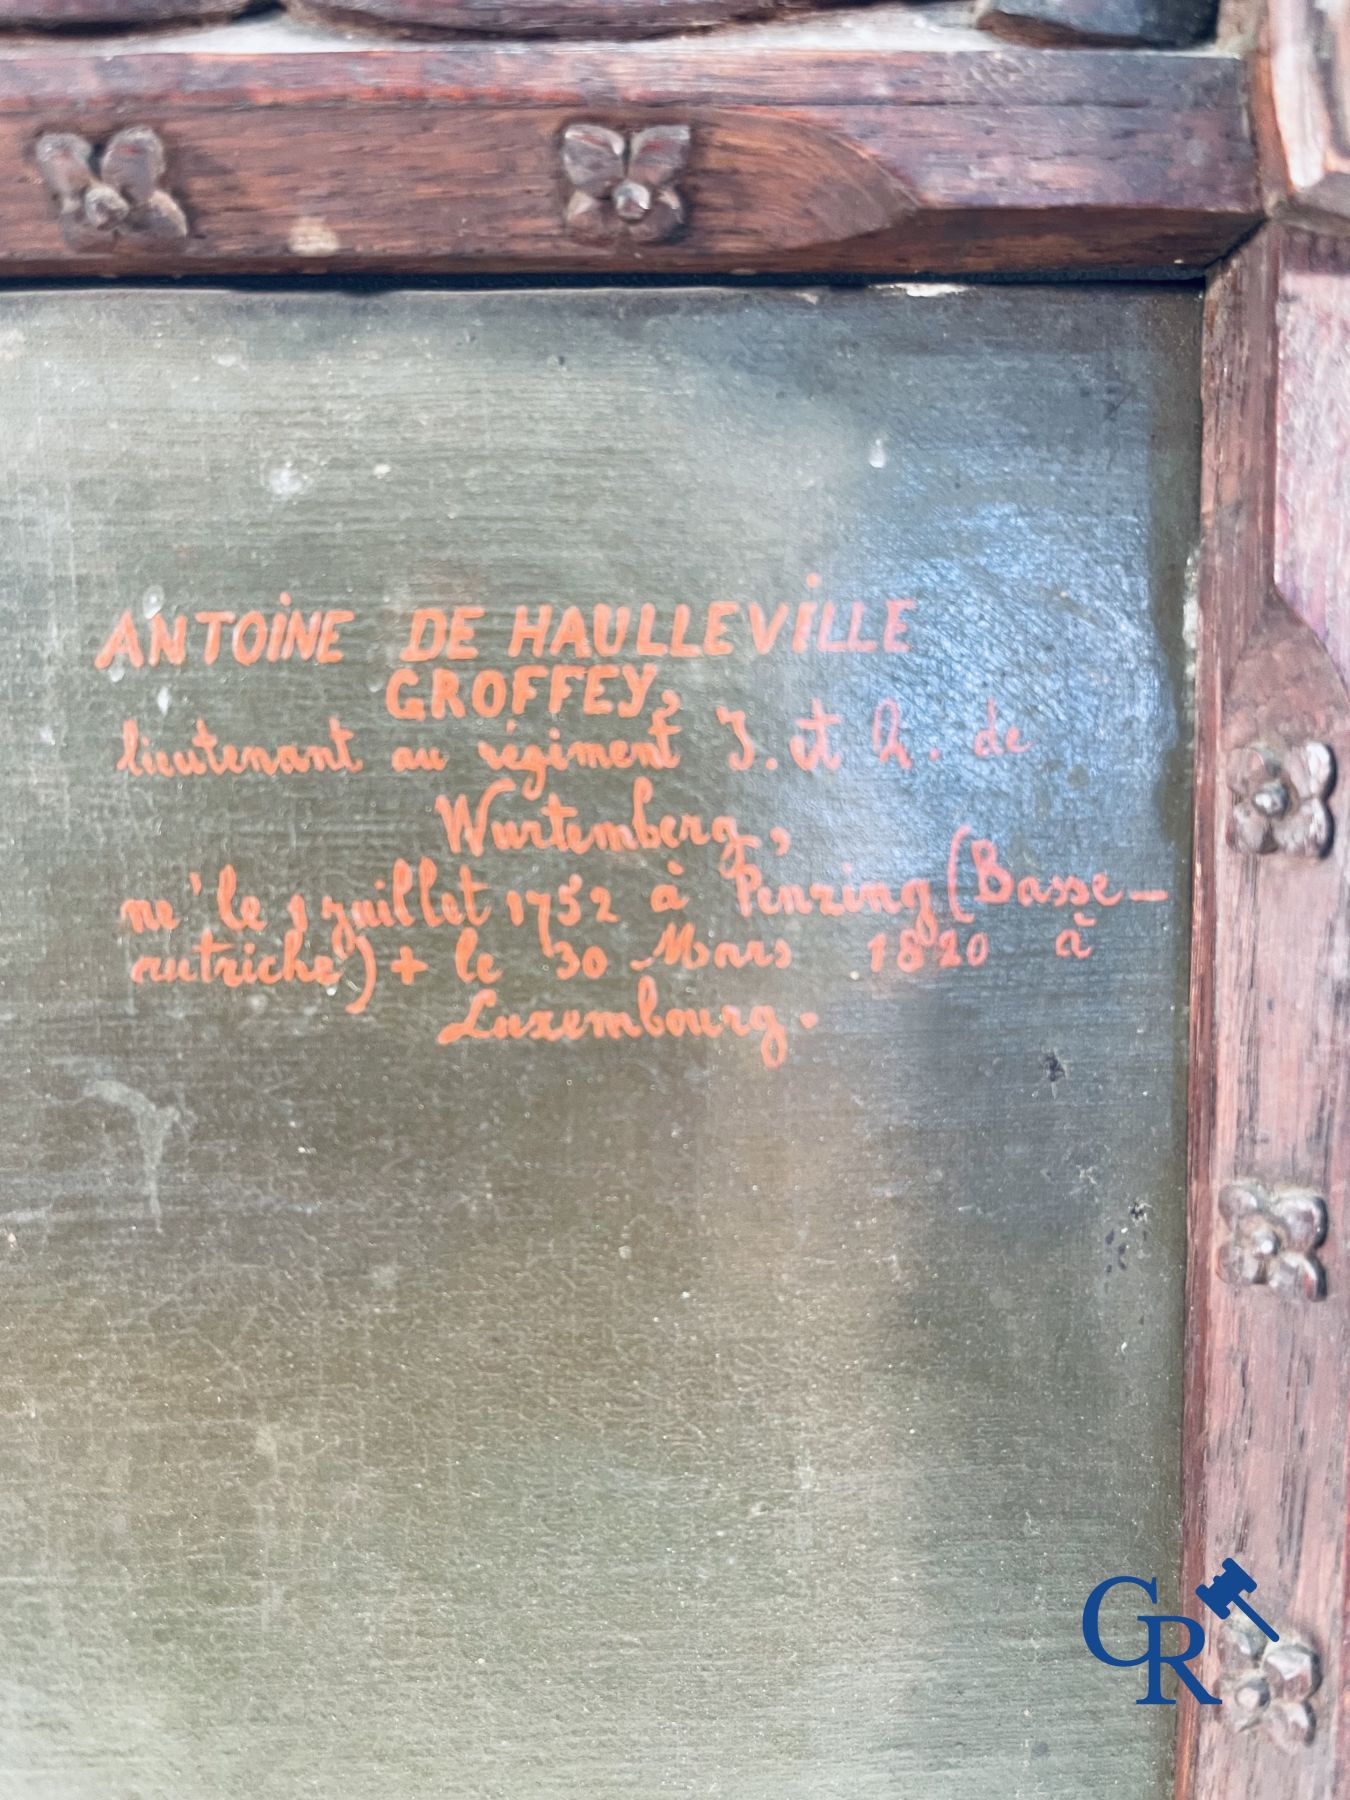 ANTOINE DE HAULLEVILLE
GROFFEY,
lieutenant au régiment I. et R. de
Wurtemberg,
né le 9 juillet 1752 à Penzing (Basse-
autriche) + le 30 Mars 1820 à
Luxembourg.
CR